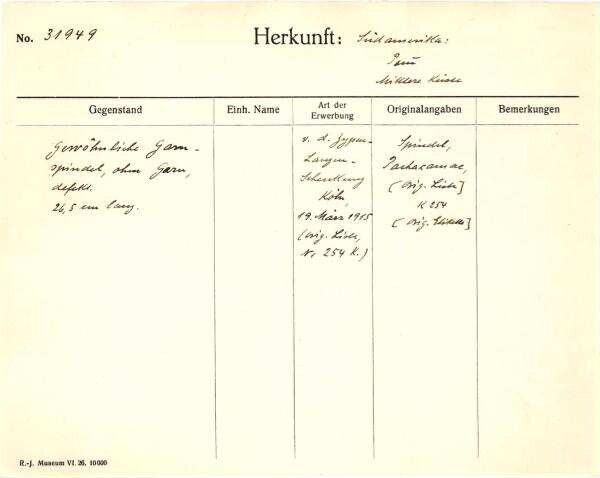 No. 31949
Herkunft: Südamerika:
Peru
Mittlere Küste
Gegenstand
Einh. Name
Art der Erwerbung
Originalangaben
Bemerkungen
Gewöhnliche Garn-
spindel, ohne Garn,
defekt.
26,5 cm lang.
v. d. Zypen-
Langen-
Schenkung
Köln,
19. März 1915
(Orig. Liste,
Nr. 254 K.)
Spindel,
Pachacamac,
(Orig. Liste]
K 254
(Orig. Etikette]
R.-J. Museum VI. 26. 10000